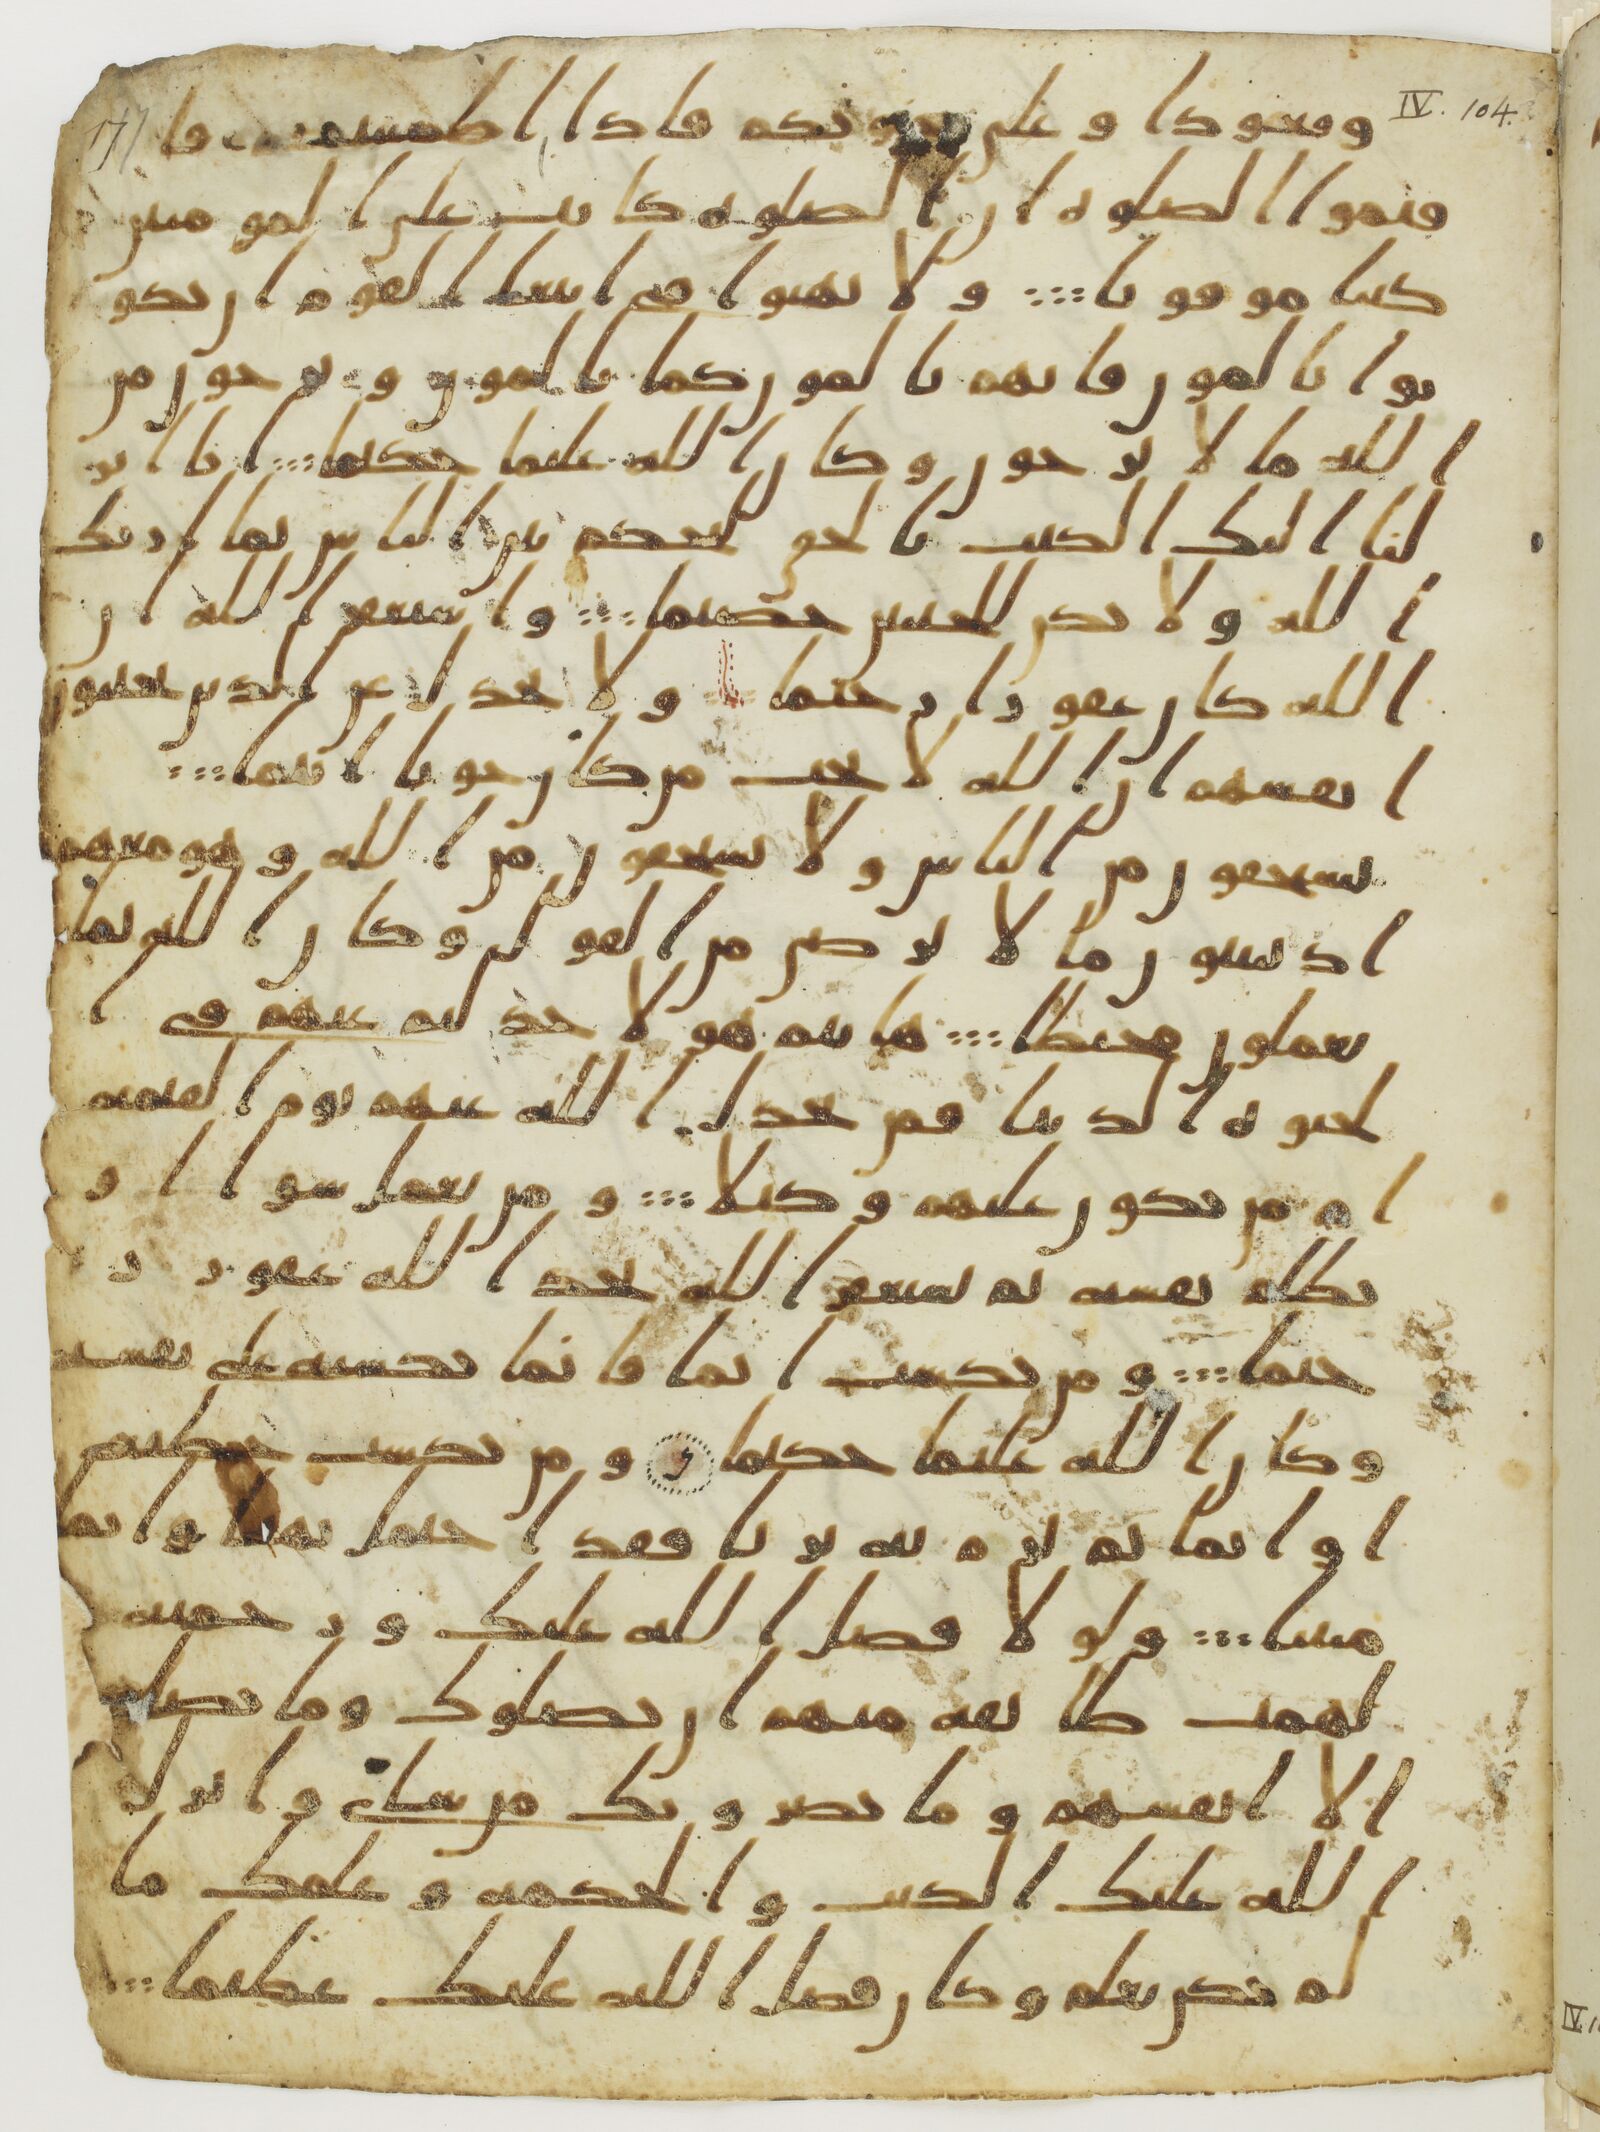 IV. 104.
وقعودا وعلى جنوبكم فاذا اطمننتم فا
قيموا الصلوه ان الصلوه كانت على المومنين
كتبا موقوتا ولا تهنوا في ابتغا القوم ان تكو
نوا تالمون فانهم يالمون كما تالمون وترجون من
الله ما لا يرجون وكان الله عليما حكيما انا انز
لنا اليك الكتب بالحق لتحكم بين الناس بما اريك
الله ولا تكن للخنين خصيما واستغفر الله ان
الله كان غفورا رحيما ولا تجدل عن الذين يختنون
انفسهم ان الله لا يحب من كان خونا اثيما
يستخفون من الناس ولا يستخفون من الله وهو معهم
اذ يبيتون ما لا يرضى من القول وكان الله بما
يعملون محيطا هانتم هولا جدلتم عنهم في ا
لحيوه الدنيا فمن يجدل الله عنهم يوم القيمه
ام من يكون عليهم وكيلا ومن يعمل سوا او
يظلم نفسه ثم يستغفر الله يجد الله غفورا ر
حيما ومن يكسب اثما فانما يكسبه على نفسه
وكان الله عليما حكيما ومن يكسب خطيه
او اثما ثم يرم به بريا فقد احتمل بهتنا واثما
مبينا ولولا فضل الله عليك ورحمته
لهمت طيفه منهم ان يضلوك وما يضلون
الا انفسهم وما يضرونك من شاي وانزل
الله عليك الكتب والحكمه وعلمك ما
لم تكن تعلم وكان فضل الله عليك عظيما